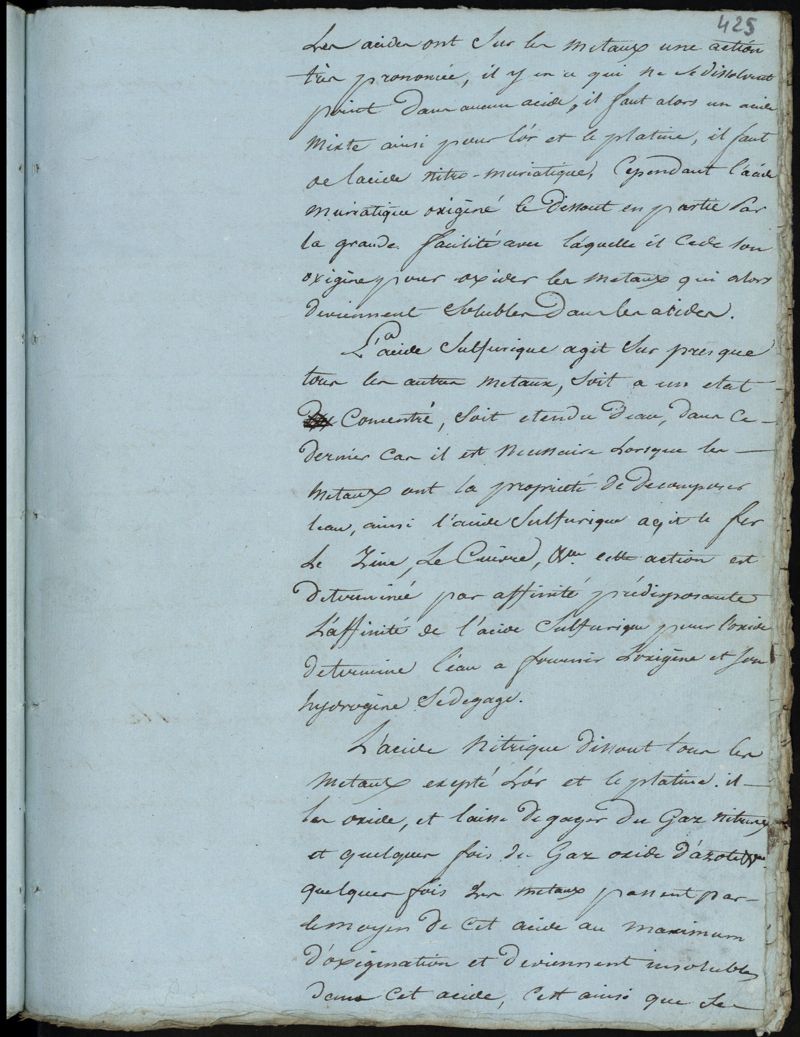 425
Les acides ont sur les metaux une action
très prononcée, il y en a qui ne se dissolvent
point dans aucun acide, il faut alors un acide
mixte ainsi pour l'or et le platine, il faut
de lacide nitro-muriatique, Cependant l'acide
muriatique oxigèné le dissout en partie par
la grande facilité avec laquelle il cede son
oxigène pour oxider les metaux qui alors
deviennent solubles dans les acides.
L'acide sulfurique agit sur presque
tous les autres metaux, soit a un etat
concentré, soit etendu d'eau, dans ce
dernier cas il est necessaire lorsque les
metaux ont la propriété de decomposer
leau, ainsi l'acide sulfurique agit le fer
Le Zinc, Le Cuivre, &a. cette action est
determinée par affinité prédisposante
L'affinité de l'acide sulfurique pour l'oxide
determine l'eau a fournir L'oxigène et son
hydrogène se degage.
L'acide nitrique dissout tous les
metaux exepté L'or et le platine. il
les oxide, et laisse degager du Gaz nitreux
et quelques fois du Gaz oxide d'azote
quelques fois Les metaux passent par
le moyen de cet acide au maximum
d'oxigenation et deviennent insolubles
dans cet acide, C'est ainsi que se